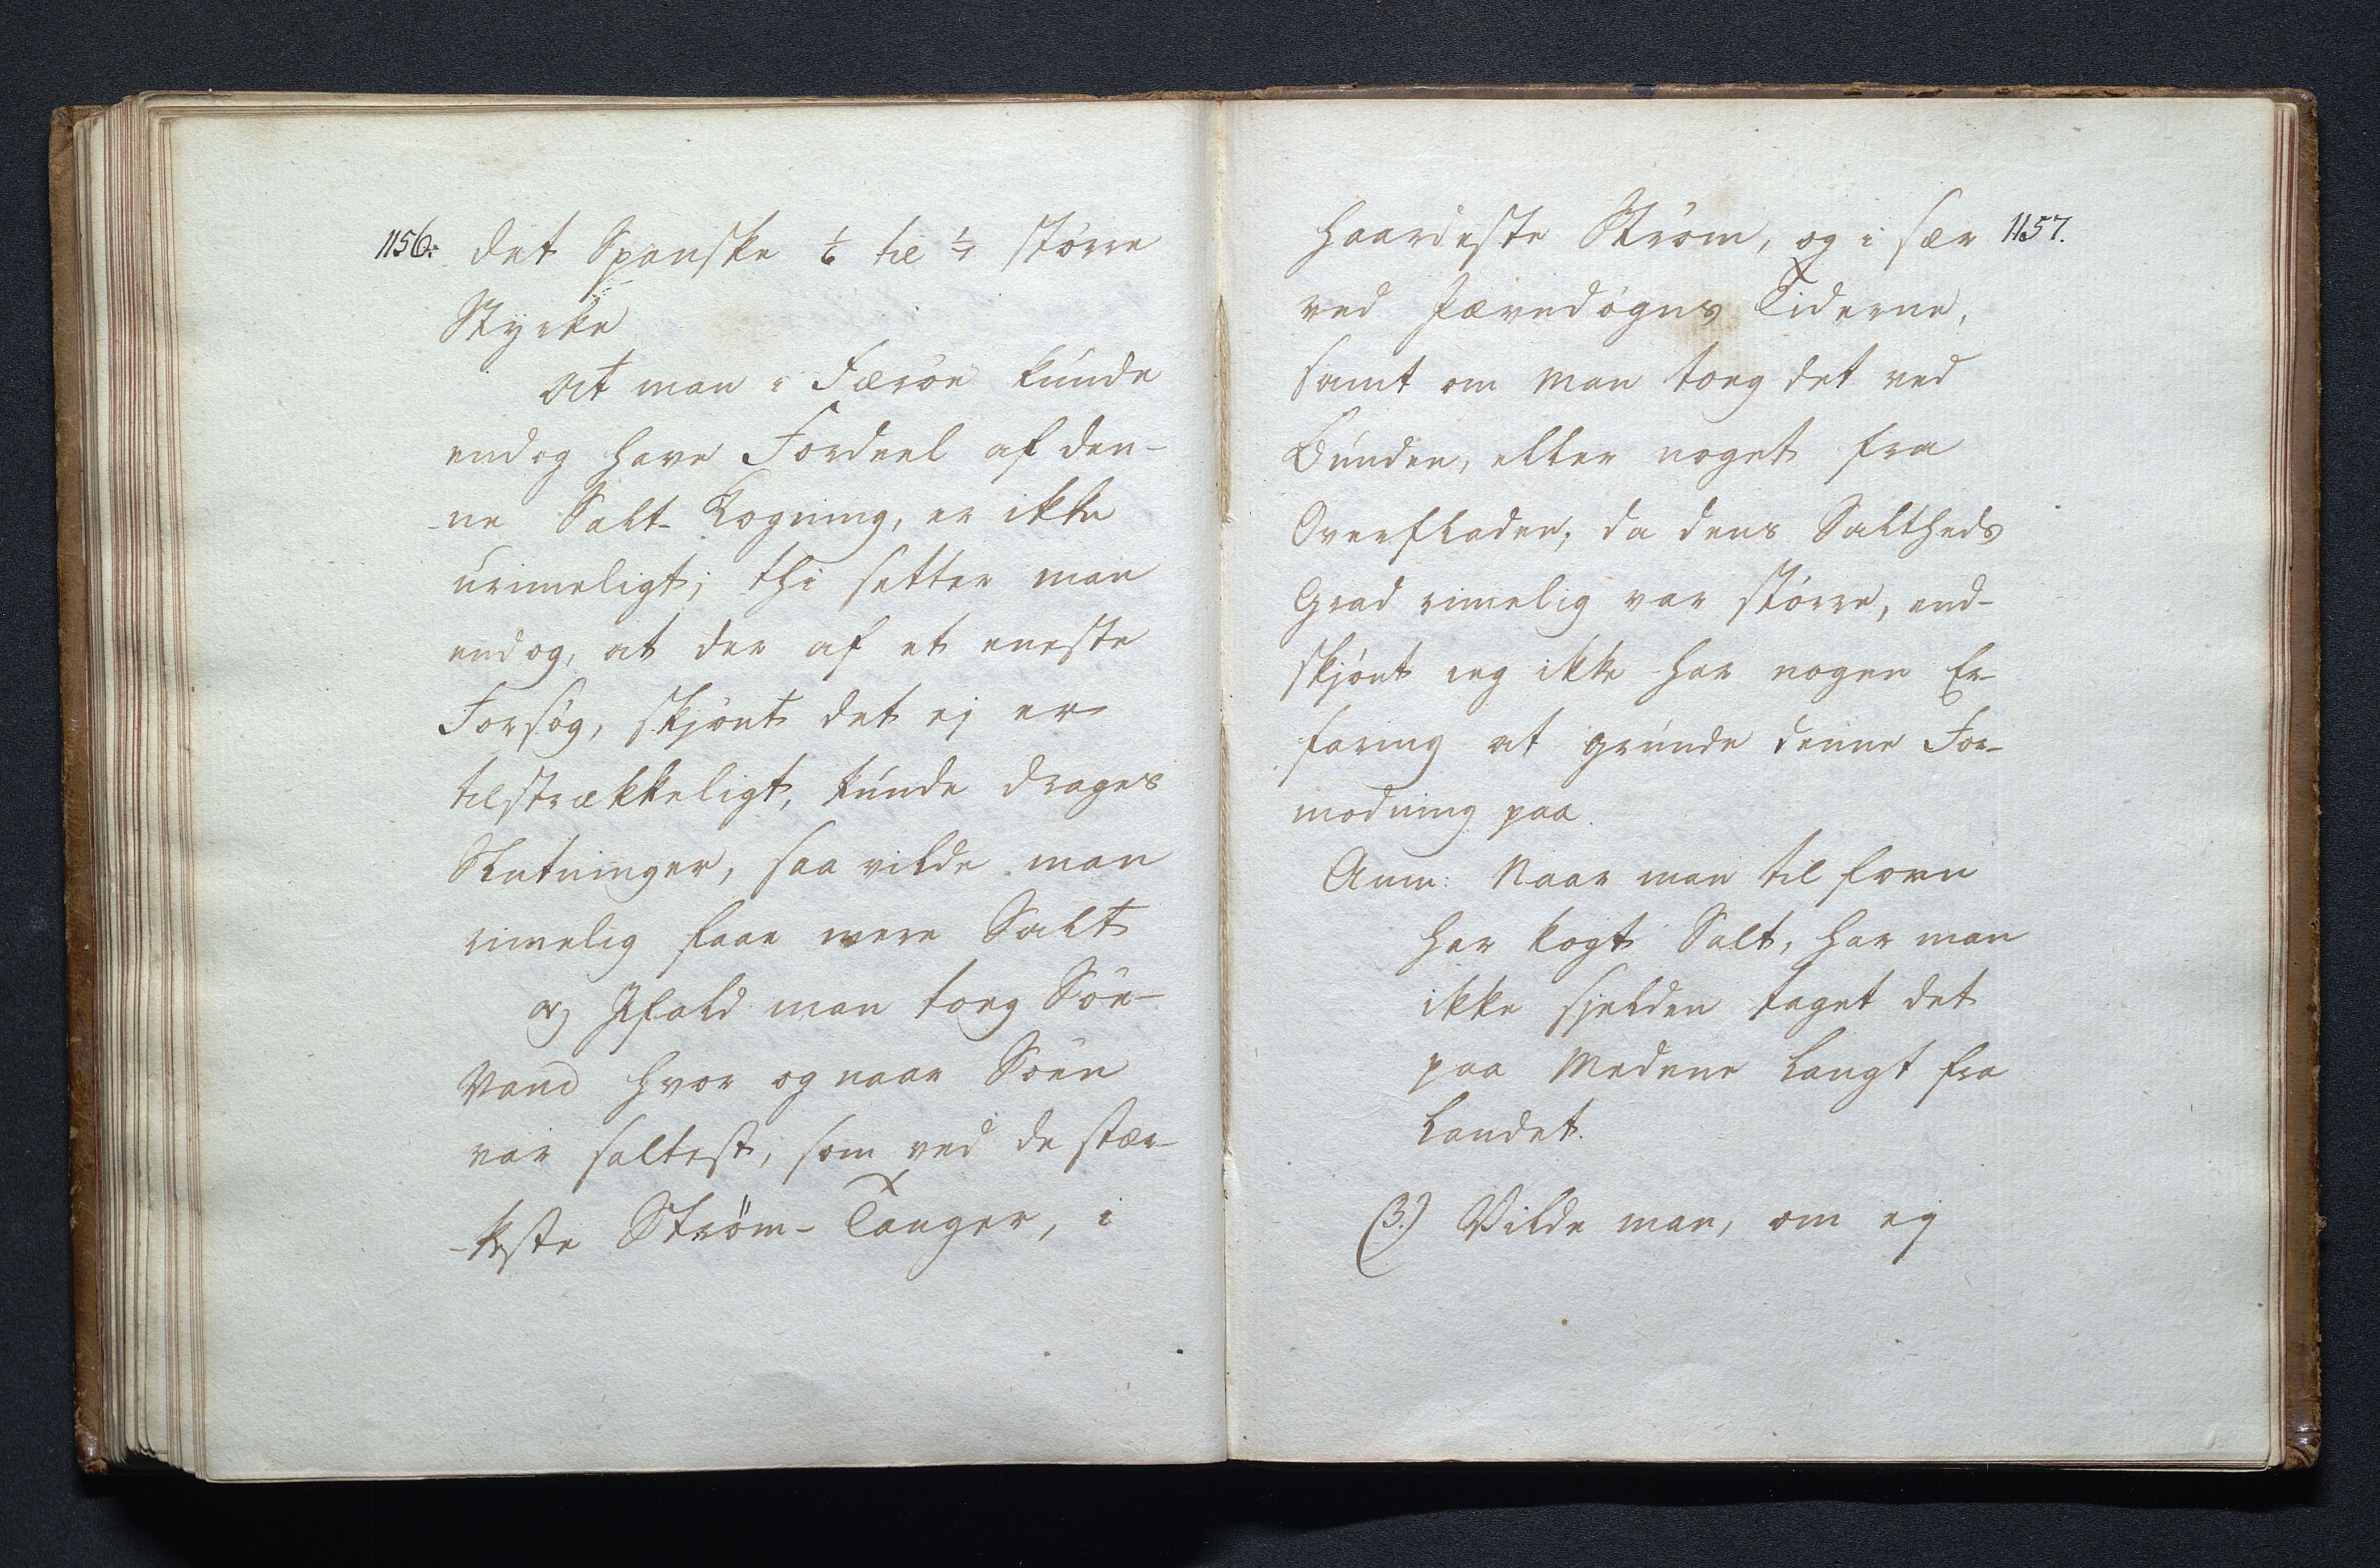 1156. det Spanske 1/6 til 1/7 större
Styrke
At man i Færöe kunde
endog have Fordeel af den-
-ne Salt-Kogning, er ikke
urimeligt; thi setter man
endog, at der af et eneste
Forsög, skjönt det ej er
tilstrækkeligt, kunde drages
Slutninger, saa vilde man
rimelig faae mere Salt
α) Ifald man toeg Söe-
Vand hvor og naar Söen
var saltest, som ved de stær-
-keste Ström-Tanger, i
haardeste Ström, og i sær 1157.
ved Jævndögns Tiderne,
samt om man toeg det ved
Bunden, eller noget fra
Overfladen; da dens Saltheds
Grad rimelig var större, end-
skjönt ieg ikke har nogen Er-
faring at grunde denne For-
modning paa.
Anm: Naar man til forn
har kogt Salt, har man
ikke sjelden taget det
paa Medene langt fra
Landet.
β.) Vilde man, om ej